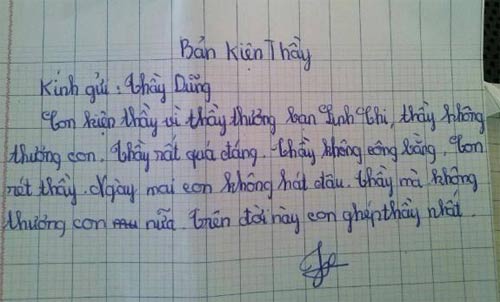 Bản Kiện Thầy
Kính gửi: thầy Dũng
Con kiện thầy vì thầy thương bạn Linh Chi, thầy không
thương con. Thầy rất quá đáng. Thầy không công bằng, Con
rét thầy. Ngày mai con không hát đâu. Thầy mà không
thương con nữa. Trên đời này con ghép thầy nhất.